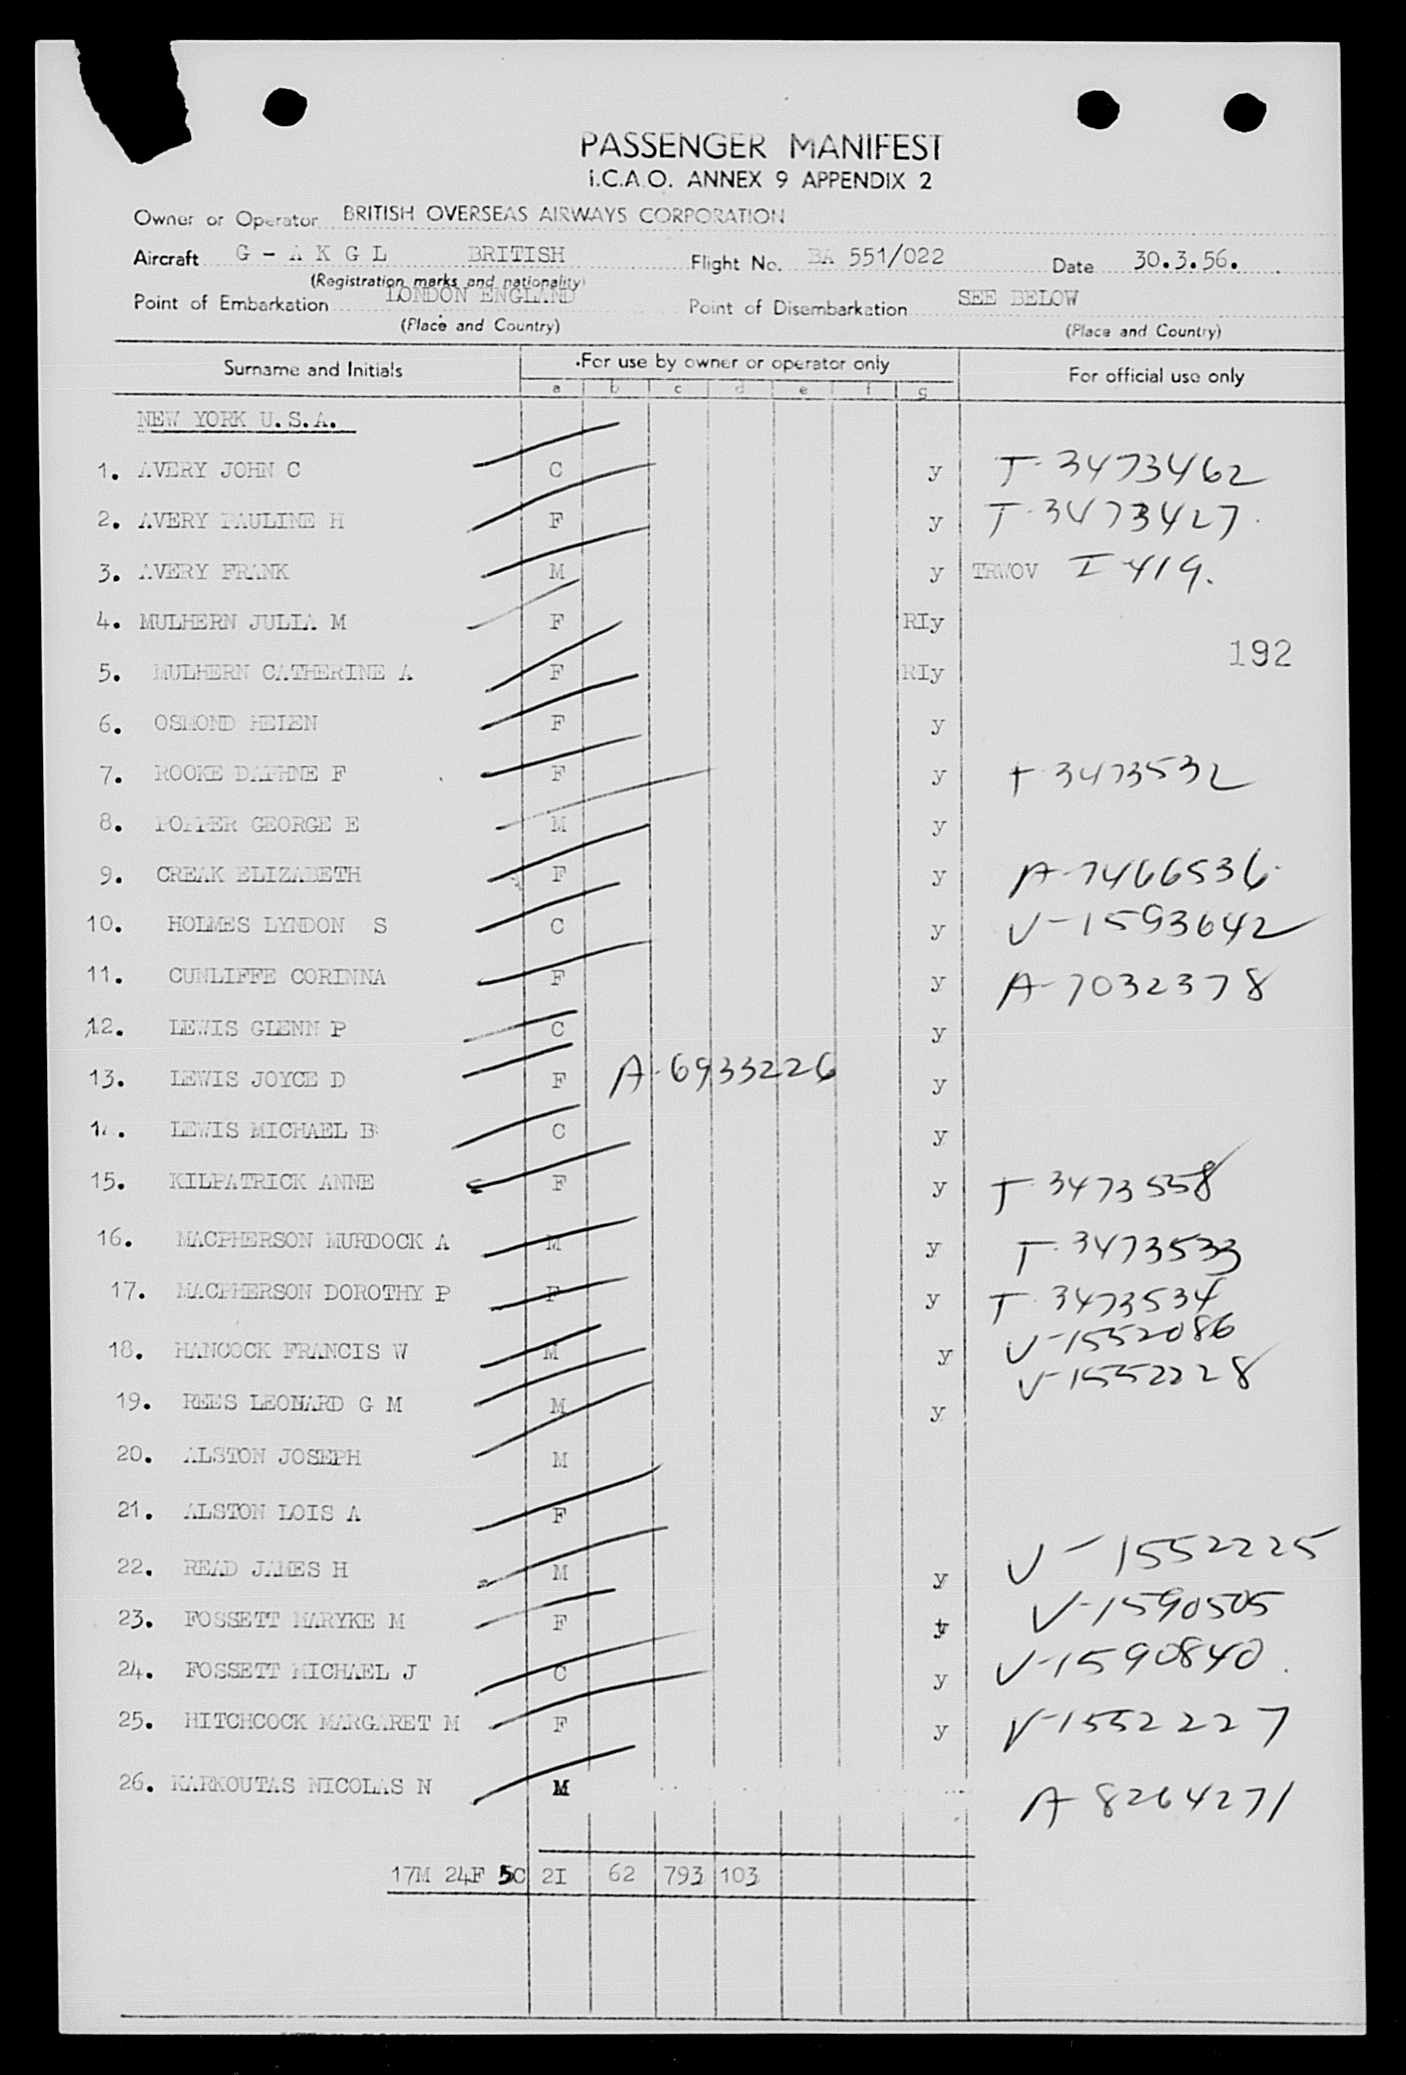 PASSENGER MANIFEST
I.C.A.O. ANNEX 9 APPENDIX 2
Owner or Operator BRITISH OVERSEAS AIRWAYS CORPORATION
Aircraft G - A K G L BRITISH Flight No. BA 551/022 Date 30.3.56.
(Registration marks and nationality)
Point of Embarkation LONDON ENGLAND Point of Disembarkation SEE BELOW
(Place and Country) (Place and Country)
Surname and Initials For use by owner or operator only For official use only
a b c d e f g
NEW YORK U.S.A.
1. AVERY JOHN C C y T-3473462
2. AVERY PAULINE H F y T-3473427
3. AVERY FRANK M y TRWOV I-419.
4. MULHERN JULIA M F RIy
192
5. MULHERN CATHERINE A F RIy
6. OSMOND HELEN F y
7. ROOKE DAPHNE F F y T-3473532
8. POPPER GEORGE E M y
9. CREAK ELIZABETH F y A-7466536
10. HOLMES LYNDON S C y V-1593642
11. CUNLIFFE CORINNA F y A-7032378
12. LEWIS GLENN P C y
13. LEWIS JOYCE D F A-6933226 y
14. LEWIS MICHAEL B C y
15. KILPATRICK ANNE F y T-3473558
16. MACPHERSON MURDOCK A M y T-3473533
17. MACPHERSON DOROTHY P F y T-3473534
18. HANCOCK FRANCIS W M y V-1552086
19. REES LEONARD G M M y V-1552228
20. ALSTON JOSEPH M
21. ALSTON LOIS A F
22. READ JAMES H M y V-1552225
23. FOSSETT MARYKE M F y V-1590505
24. FOSSETT MICHAEL J C y V-1590840
25. HITCHCOCK MARGARET M F y V-1552227
26. KARKOUTAS NICOLAS N M A-8264271
17M 24F 5C 2I 62 793 103